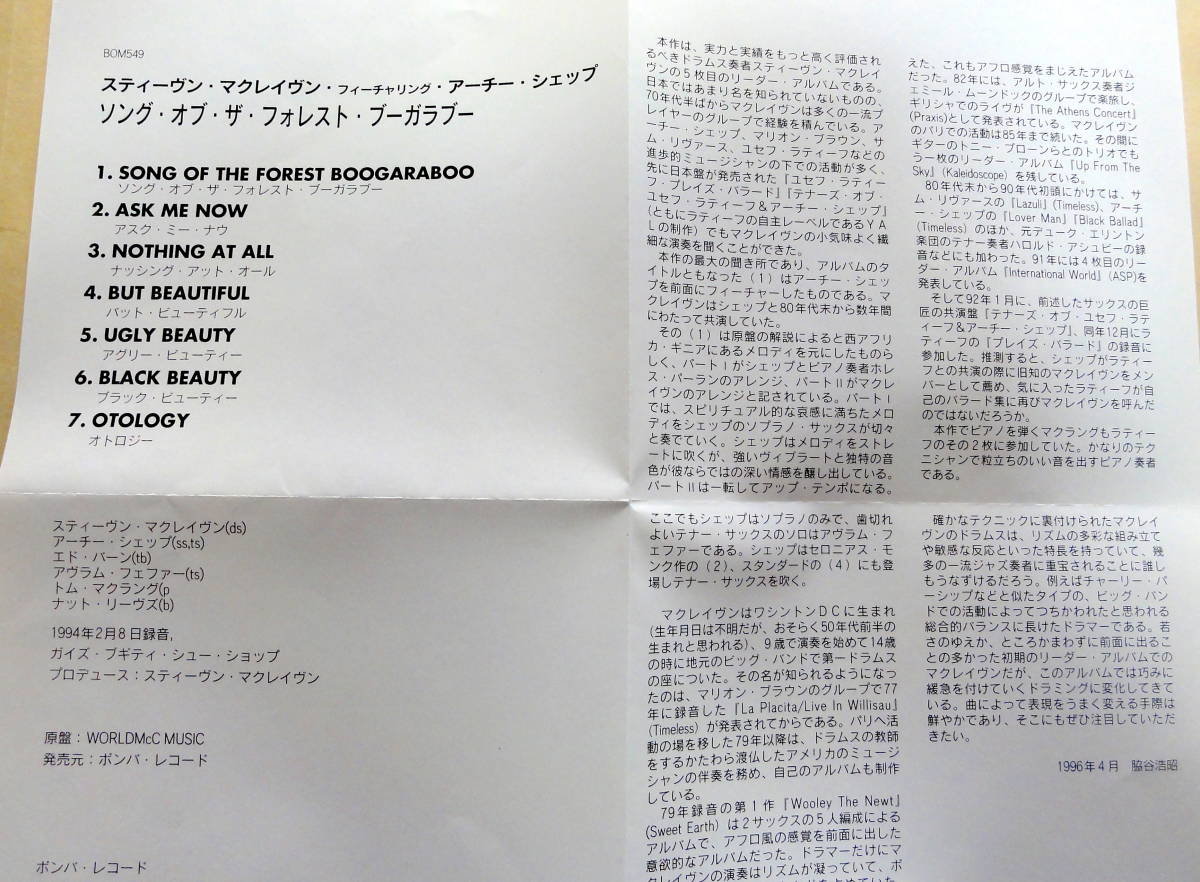 BOM549
スティーヴン・マクレイヴン・フィーチャリング・アーチー・シェップ
ソング・オブ・ザ・フォレスト・ブーガラブー
1. SONG OF THE FOREST BOOGARABOO
ソング・オブ・ザ・フォレスト・ブーガラブー
2. ASK ME NOW
アスク・ミー・ナウ
3. NOTHING AT ALL
ナッシング・アット・オール
4. BUT BEAUTIFUL
バット・ビューティフル
5. UGLY BEAUTY
アグリー・ビューティー
6. BLACK BEAUTY
ブラック・ビューティー
7. OTOLOGY
オトロジー
スティーヴン・マクレイヴン(ds)
アーチー・シェップ(ss,ts)
エド・バーン(tb)
アヴラム・フェファー(ts)
トム・マクラング(p
ナット・リーヴズ(b)
1994年2月8日録音,
ガイズ・ブギティ・シュー・ショップ
プロデュース：スティーヴン・マクレイヴン
原盤：WORLDMcC MUSIC
発売元：ボンバ・レコード
ボンバ・レコード
本作は、実力と実績をもっと高く評価され
るべきドラムス奏者スティーヴン・マクレイ
ヴンの５枚目のリーダー・アルバムである。
日本ではあまり名を知られていないものの、
70年代半ばからマクレイヴンは多くの一流プ
レイヤーのグループで経験を積んでいる。ア
ーチー・シェップ、マリオン・ブラウン、サ
ム・リヴァース、ユセフ・ラティーフなどの
進歩的ミュージシャンの下での活動が多く、
先に日本盤が発売された『ユセフ・ラティー
フ・プレイズ・バラード』『テナーズ・オブ・
ユセフ・ラティーフ＆アーチー・シェップ』
（ともにラティーフの自主レーベルであるＹＡ
Ｌの制作）でもマクレイヴンの小気味よく繊
細な演奏を聞くことができた。
本作の最大の聞き所であり、アルバムのタ
イトルともなった（１）はアーチー・シェッ
プを前面にフィーチャーしたものである。マ
クレイヴンはシェップと80年代末から数年間
にわたって共演していた。
その（１）は原盤の解説によると西アフリ
カ・ギニアにあるメロディを元にしたものら
しく、パートⅠがシェップとピアノ奏者ホレ
ス・パーランのアレンジ、パートⅡがマクレ
イヴンのアレンジと記されている。パートⅠ
では、スピリチュアル的な哀感に満ちたメロ
ディをシェップのソプラノ・サックスが切々
と奏でていく。シェップはメロディをストレ
ートに吹くが、強いヴィブラートと独特の音
色が彼ならではの深い情感を醸し出している。
パートⅡは一転してアップ・テンポになる。
ここでもシェップはソプラノのみで、歯切れ
よいテナー・サックスのソロはアヴラム・フ
ェファーである。シェップはセロニアス・モ
ンク作の（２）、スタンダードの（４）にも登
場しテナー・サックスを吹く。
マクレイヴンはワシントンＤＣに生まれ
（生年月日は不明だが、おそらく50年代前半の
生まれと思われる）、９歳で演奏を始めて14歳
の時に地元のビッグ・バンドで第一ドラムス
の座についた。その名が知られるようになっ
たのは、マリオン・ブラウンのグループで77
年に録音した『La Placita/Live In Willisau』
(Timeless) が発表されてからである。パリへ活
動の場を移した79年以降は、ドラムスの教師
をするかたわら渡仏したアメリカのミュージ
シャンの伴奏を務め、自己のアルバムも制作
している。
79年録音の第１作『Wooley The Newt』
(Sweet Earth) は２サックスの５人編成による
アルバムで、アフロ風の感覚を前面に出した
意欲的なアルバムだった。ドラマーだけにマ
クレイヴンの演奏はリズムが凝っていて、ボ
えた、これもアフロ感覚をまじえたアルバム
だった。82年には、アルト・サックス奏者ジ
ェミール・ムーンドックのグループで楽旅し、
ギリシャでのライヴが『The Athens Concert』
(Praxis)として発表されている。マクレイヴン
のパリでの活動は85年まで続いた。その間に
ギターのトニー・ブローンらとのトリオでも
う一枚のリーダー・アルバム『Up From The
Sky』(Kaleidoscope) を残している。
80年代末から90年代初頭にかけては、サ
ム・リヴァースの『Lazuli』(Timeless)、アーチ
ー・シェップの『Lover Man』『Black Ballad』
(Timeless) のほか、元デューク・エリントン
楽団のテナー奏者ハロルド・アシュビーの録
音などにも加わった。91年には４枚目のリー
ダー・アルバム『International World』(ASP)を
発表している。
そして92年１月に、前述したサックスの巨
匠の共演盤『テナーズ・オブ・ユセフ・ラテ
ィーフ＆アーチー・シェップ』、同年12月にラ
ティーフの『プレイズ・バラード』の録音に
参加した。推測すると、シェップがラティー
フとの共演の際に旧知のマクレイヴンをメン
バーとして薦め、気に入ったラティーフが自
己のバラード集に再びマクレイヴンを呼んだ
のではないだろうか。
本作でピアノを弾くマクラングもラティー
フのその２枚に参加していた。かなりのテク
ニシャンで粒立ちのいい音を出すピアノ奏者
である。
確かなテクニックに裏付けられたマクレイ
ヴンのドラムスは、リズムの多彩な組み立て
や敏感な反応といった特長を持っていて、幾
多の一流ジャズ奏者に重宝されることに誰し
もうなずけるだろう。例えばチャーリー・パ
ーシップなどと似たタイプの、ビッグ・バン
ドでの活動によってつちかわれたと思われる
総合的バランスに長けたドラマーである。若
さのゆえか、ところかまわずに前面に出るこ
との多かった初期のリーダー・アルバムでの
マクレイヴンだが、このアルバムでは巧みに
緩急を付けていくドラミングに変化してきて
いる。曲によって表現をうまく変える手際は
鮮やかであり、そこにもぜひ注目していただ
きたい。
1996年４月　脇谷浩昭